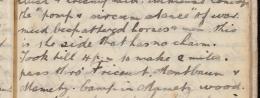 the "pomp & circumstance" of war
mud bespattered horses & men this
is the side that has no charm.
Took till 4 pm to make 2 miles.
pass thro' Fricourt, Montbaun &
Mametz. Camp in Mametz wood.